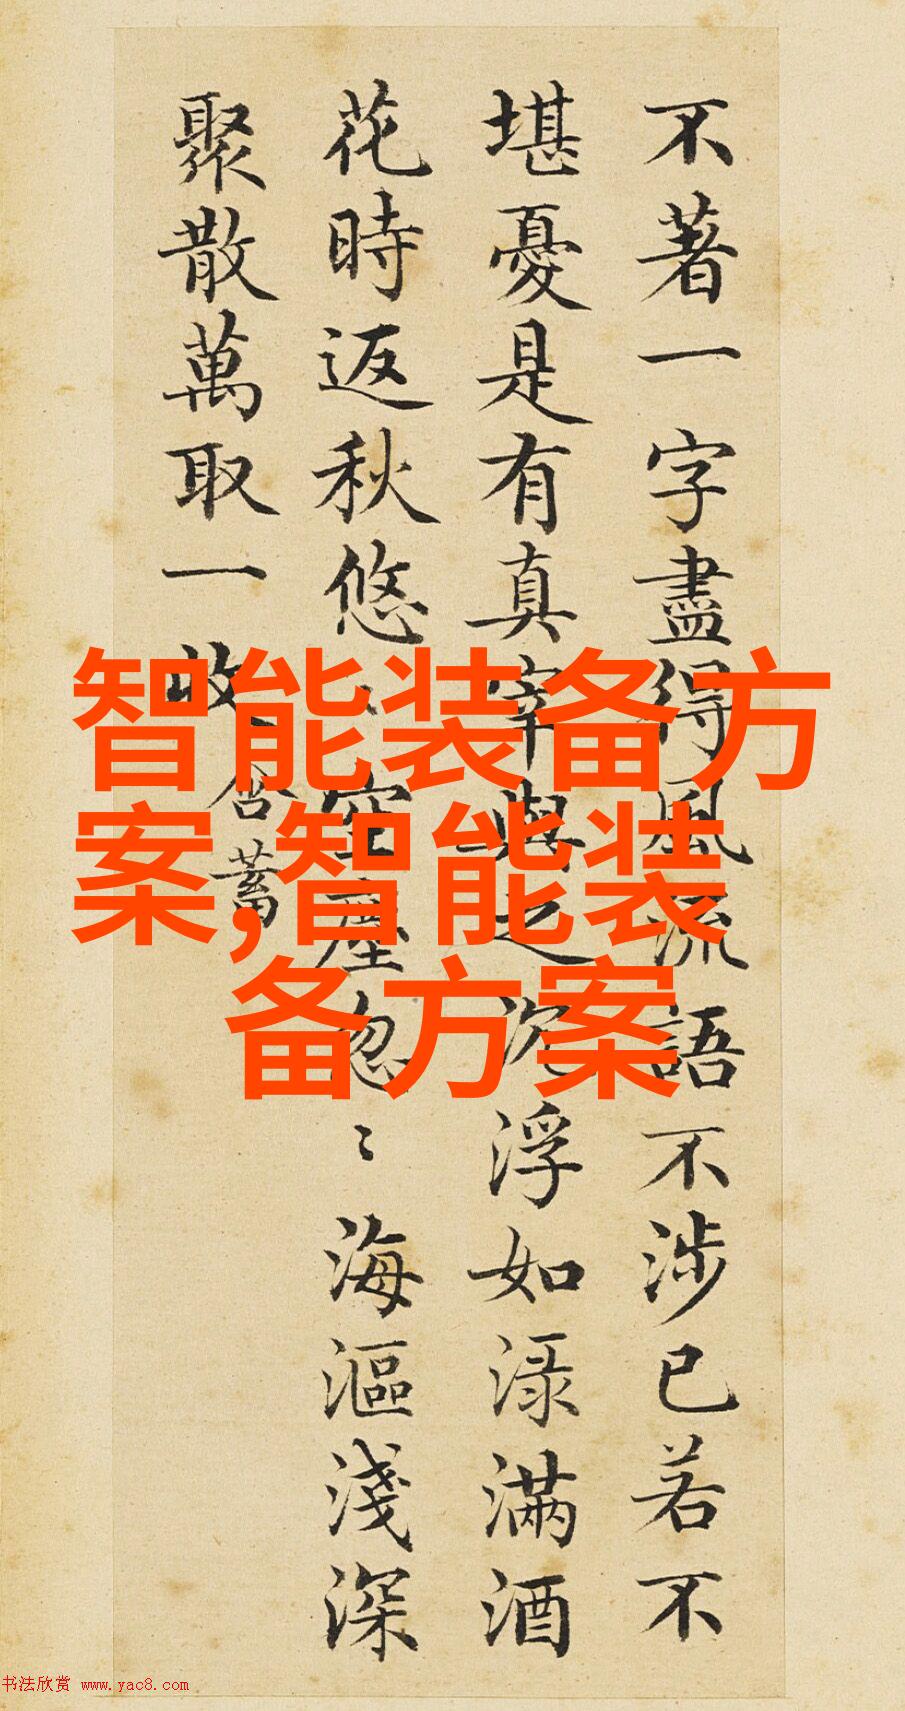 不著一字盡得風流語不涉已若不
堪憂是有真宰與之沉浮如渌滿酒
花時返秋悠〻空塵忽〻海漚淺深
聚散萬取一收
含蓄
智能装备方
案,智能装
备方案
书法欣赏 www.yac8.com